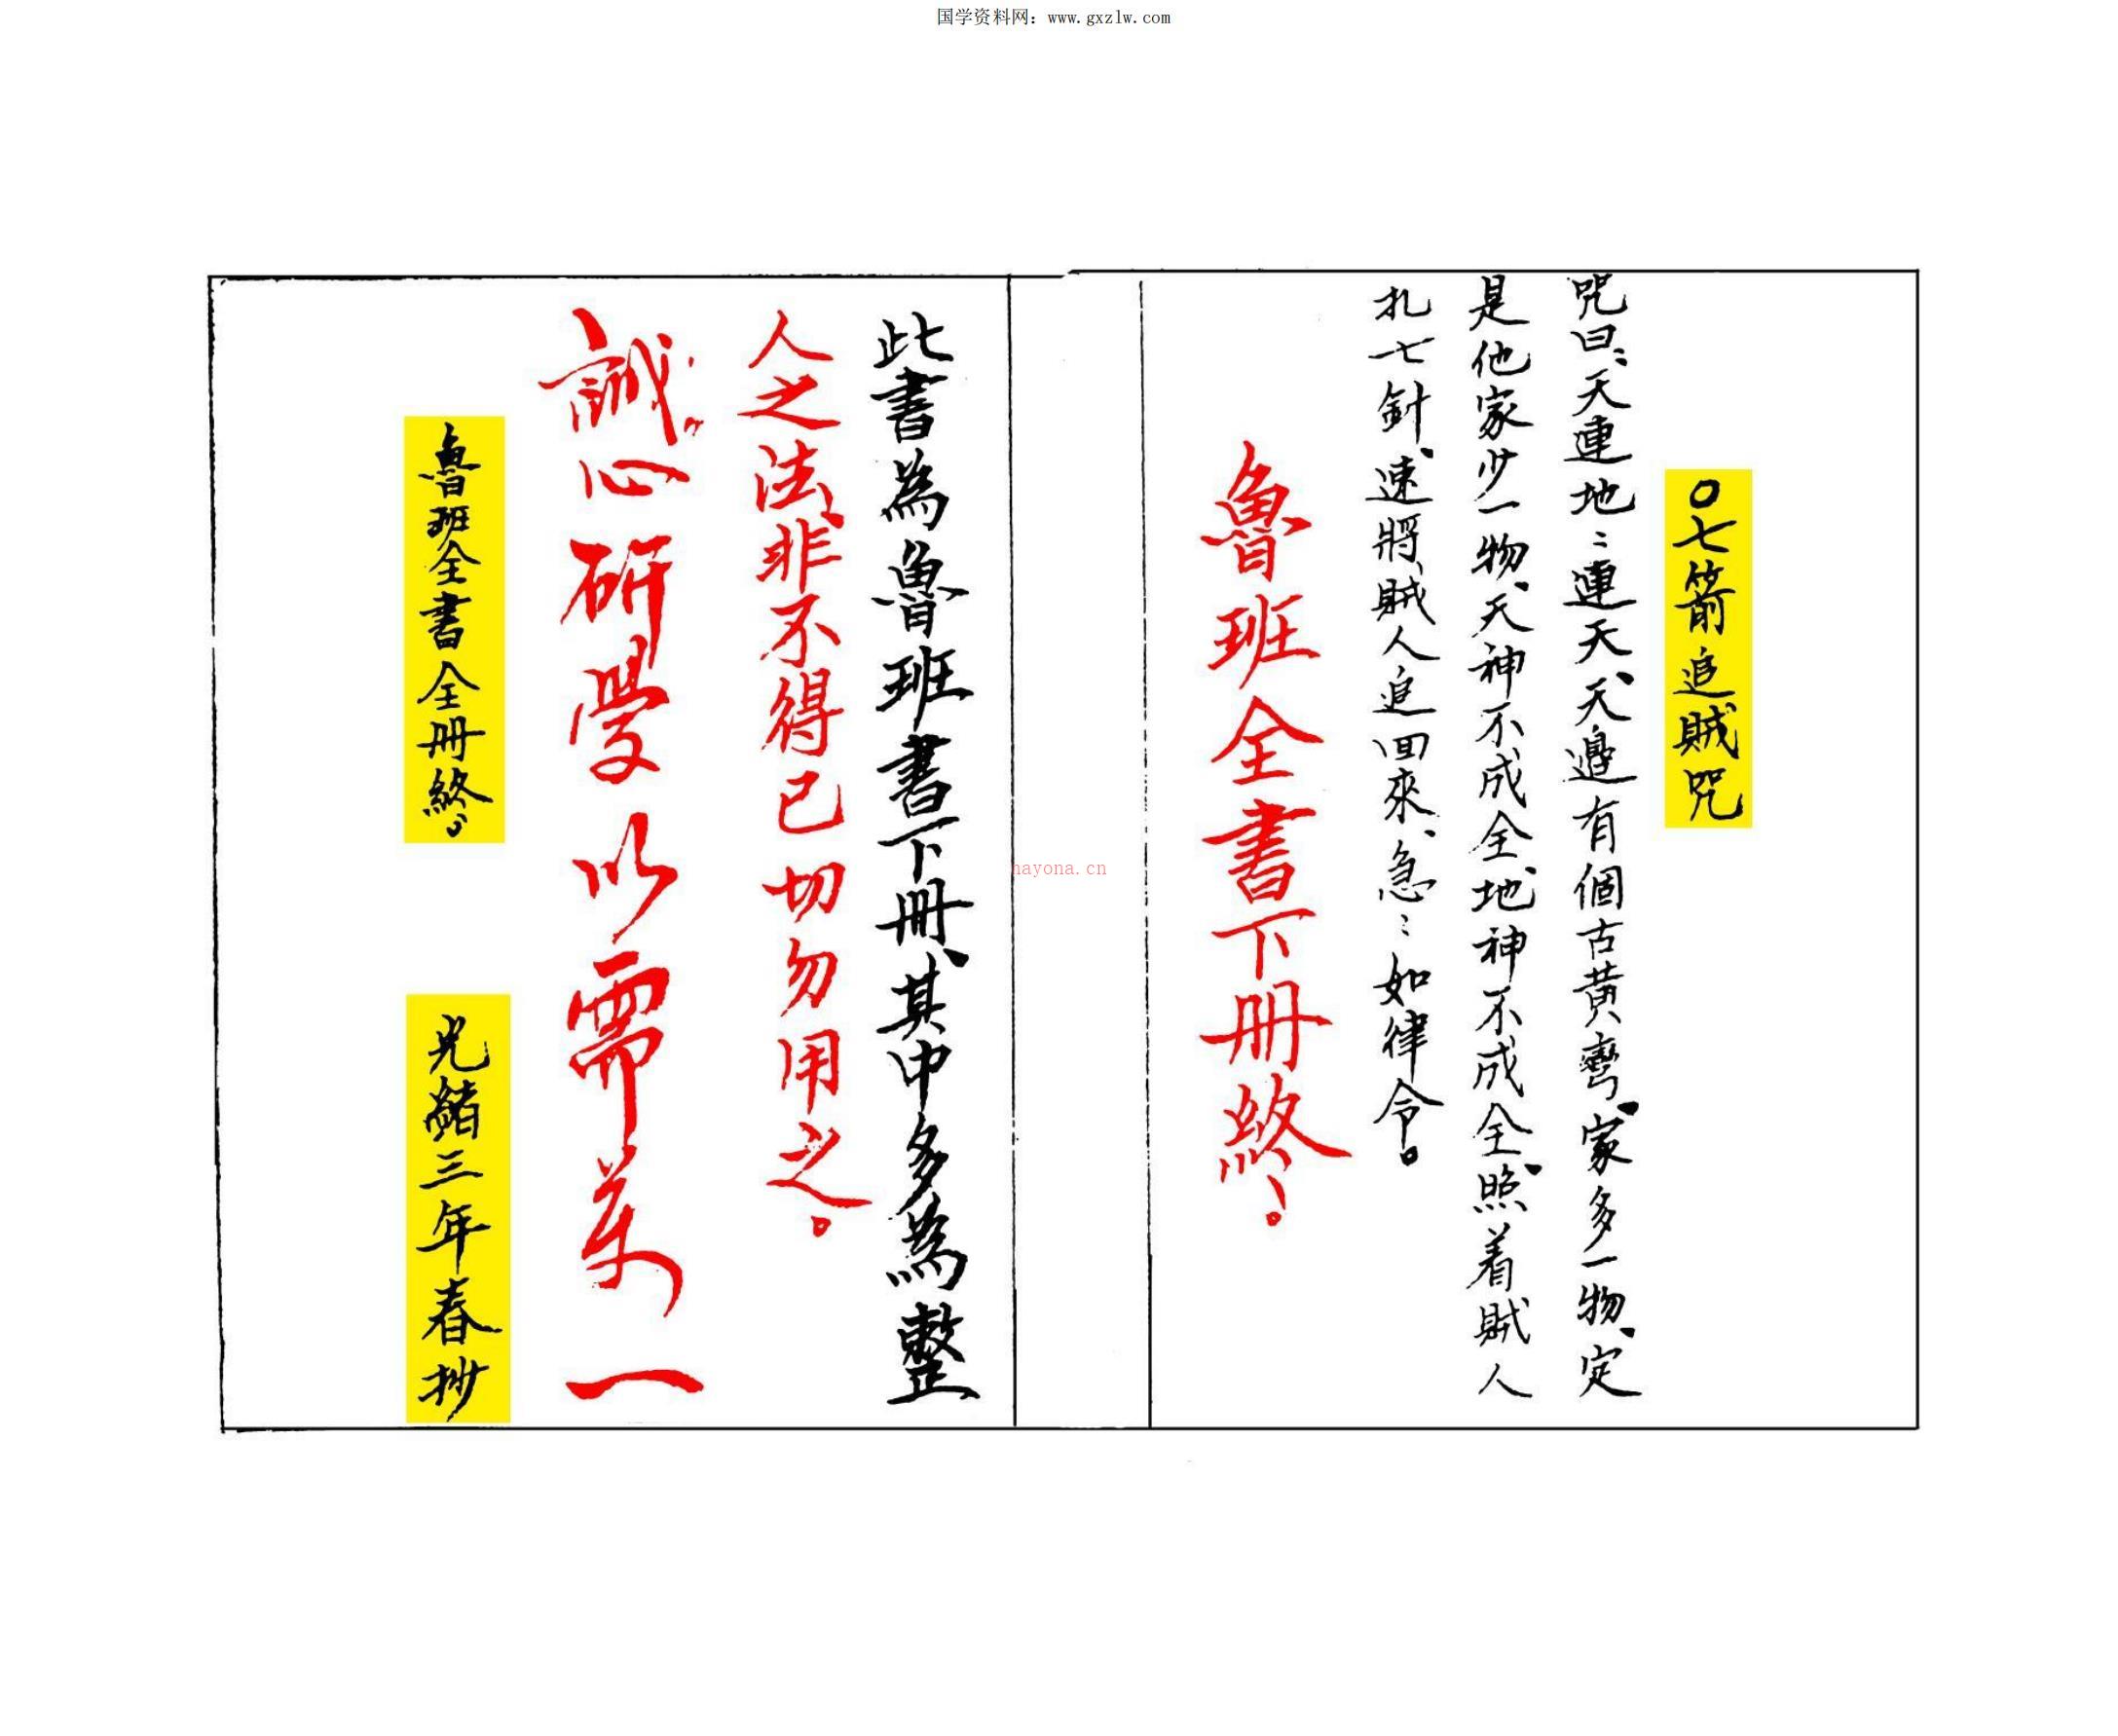 国学资料网：www.gxzlw.com
〇七箭追贼咒
咒曰:天連地:連天、天邊有個古黄彎、家多一物、定
是他家少一物、天神不成全、地神不成全、照着賊人
扎七針、速將賊人追回來、急:如律令。
魯班全書下冊終!。
此書為魯班書下冊、其中多為整
人之法、非不得已切勿用之。
誠心研受以需萬一
魯班全書全冊終。
光緒三年春抄
hayona.cn